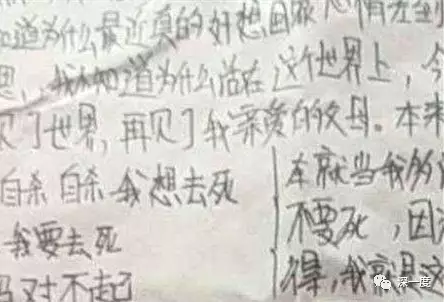 知道为什么最近真的好想回报
思，我不知道为什么活在这个世界上，今
见了世界，再见了我亲爱的父母。本来
自杀 自杀 我想去死
我要去死
妈对不起
本就当我
不要死，因
得，我就是这
深一度